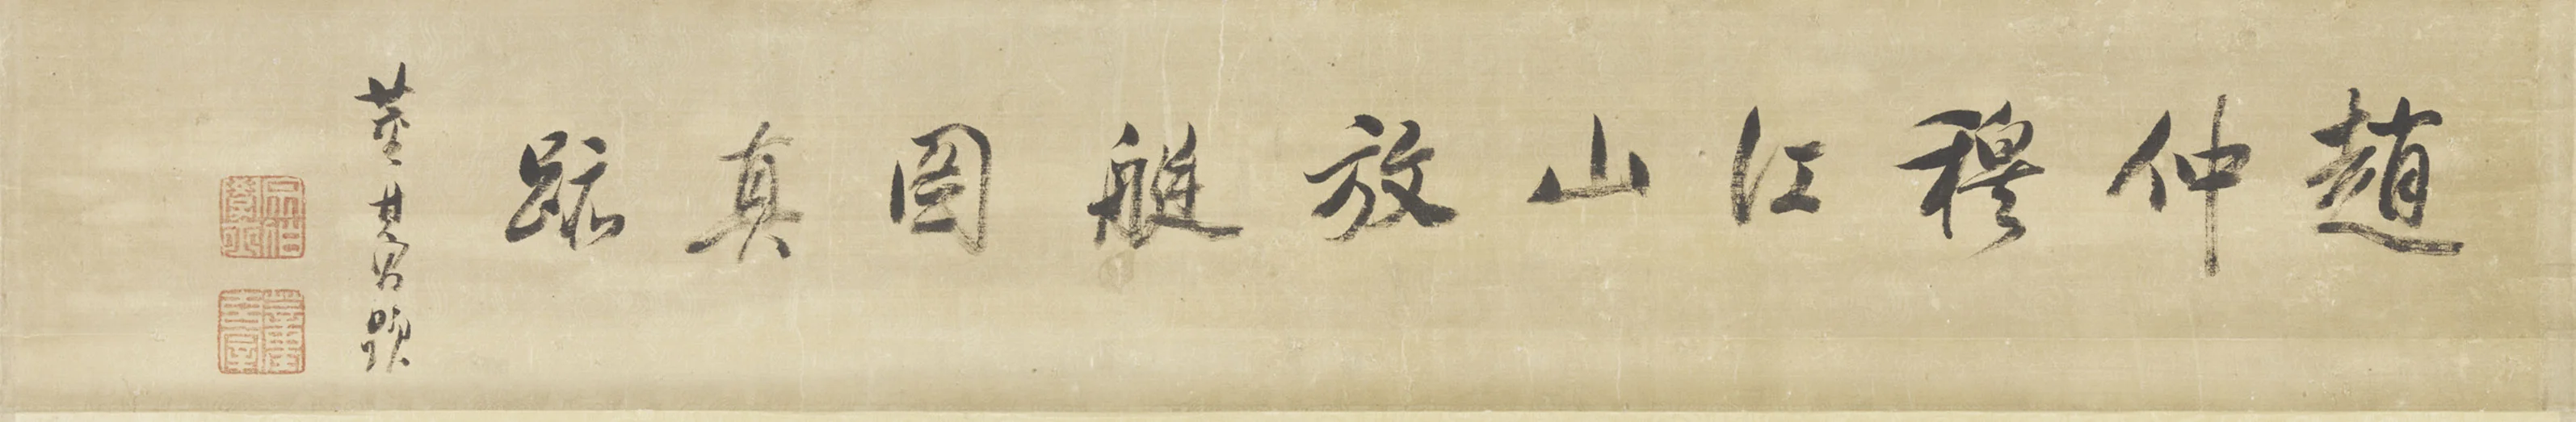 趙仲穆江山放艇圖真跡
董其昌題